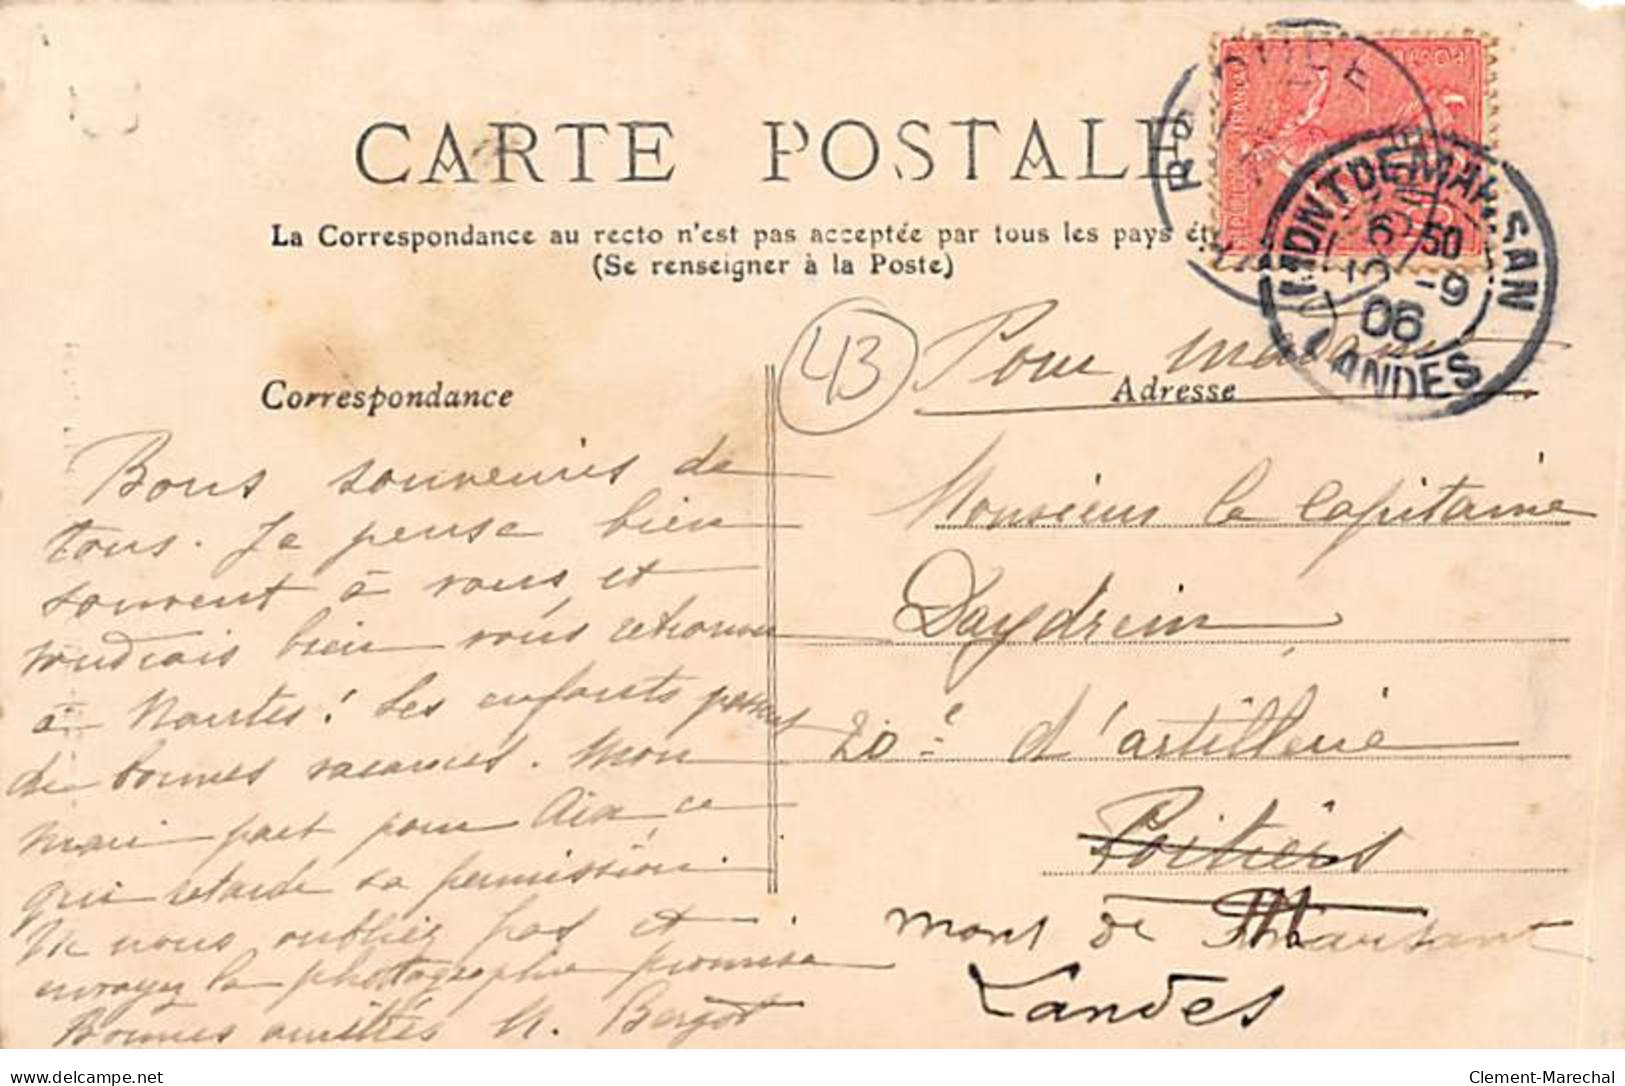 CARTE POSTALE
La Correspondance au recto n'est pas acceptée par tous les pays ét
(Se renseigner à la Poste)
Correspondance
Bons souvenirs de
tous. Je pense bien
souvent à vous et
voudrais bien vous retrouver
à Nantes! Les enfants passent
de bonnes vacances. Mon
mari part pour Aix ce
qui retarde sa permission.
Ne nous oubliez pas et
envoyez la photographie promise
Bonnes amitiés N. Bergot
43
Pour madame
Adresse
Monsieur le Capitaine
Daydrein
20e d'artillerie
Poitiers
Mont de Marsant
Landes
MONT DE MARSAN
6 50
-9
06
LANDES
delcampe.net
Clement-Marechal